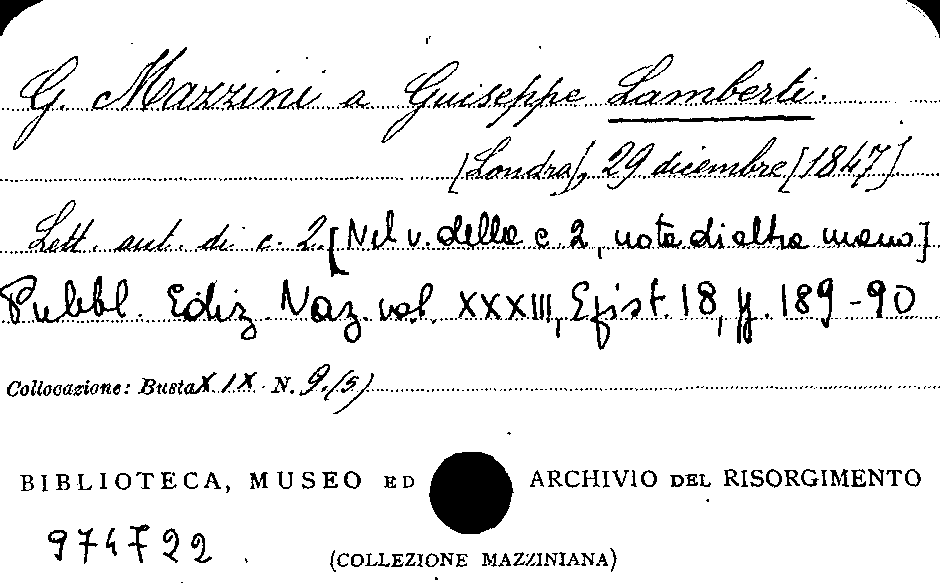 G. Mazzini a Guiseppe Lamberti.
[Londra], 29 dicembre [1847].
Lett. aut. di c. 2. [Nel v. della c 2, nota di altra mano]
Pubbl. Ediz. Naz. vol. XXXIII, Epist. 18, p. 189-90
Collocazione: Busta XIX N. 9.(5)
BIBLIOTECA, MUSEO ED ARCHIVIO DEL RISORGIMENTO
974722
(COLLEZIONE MAZZINIANA)